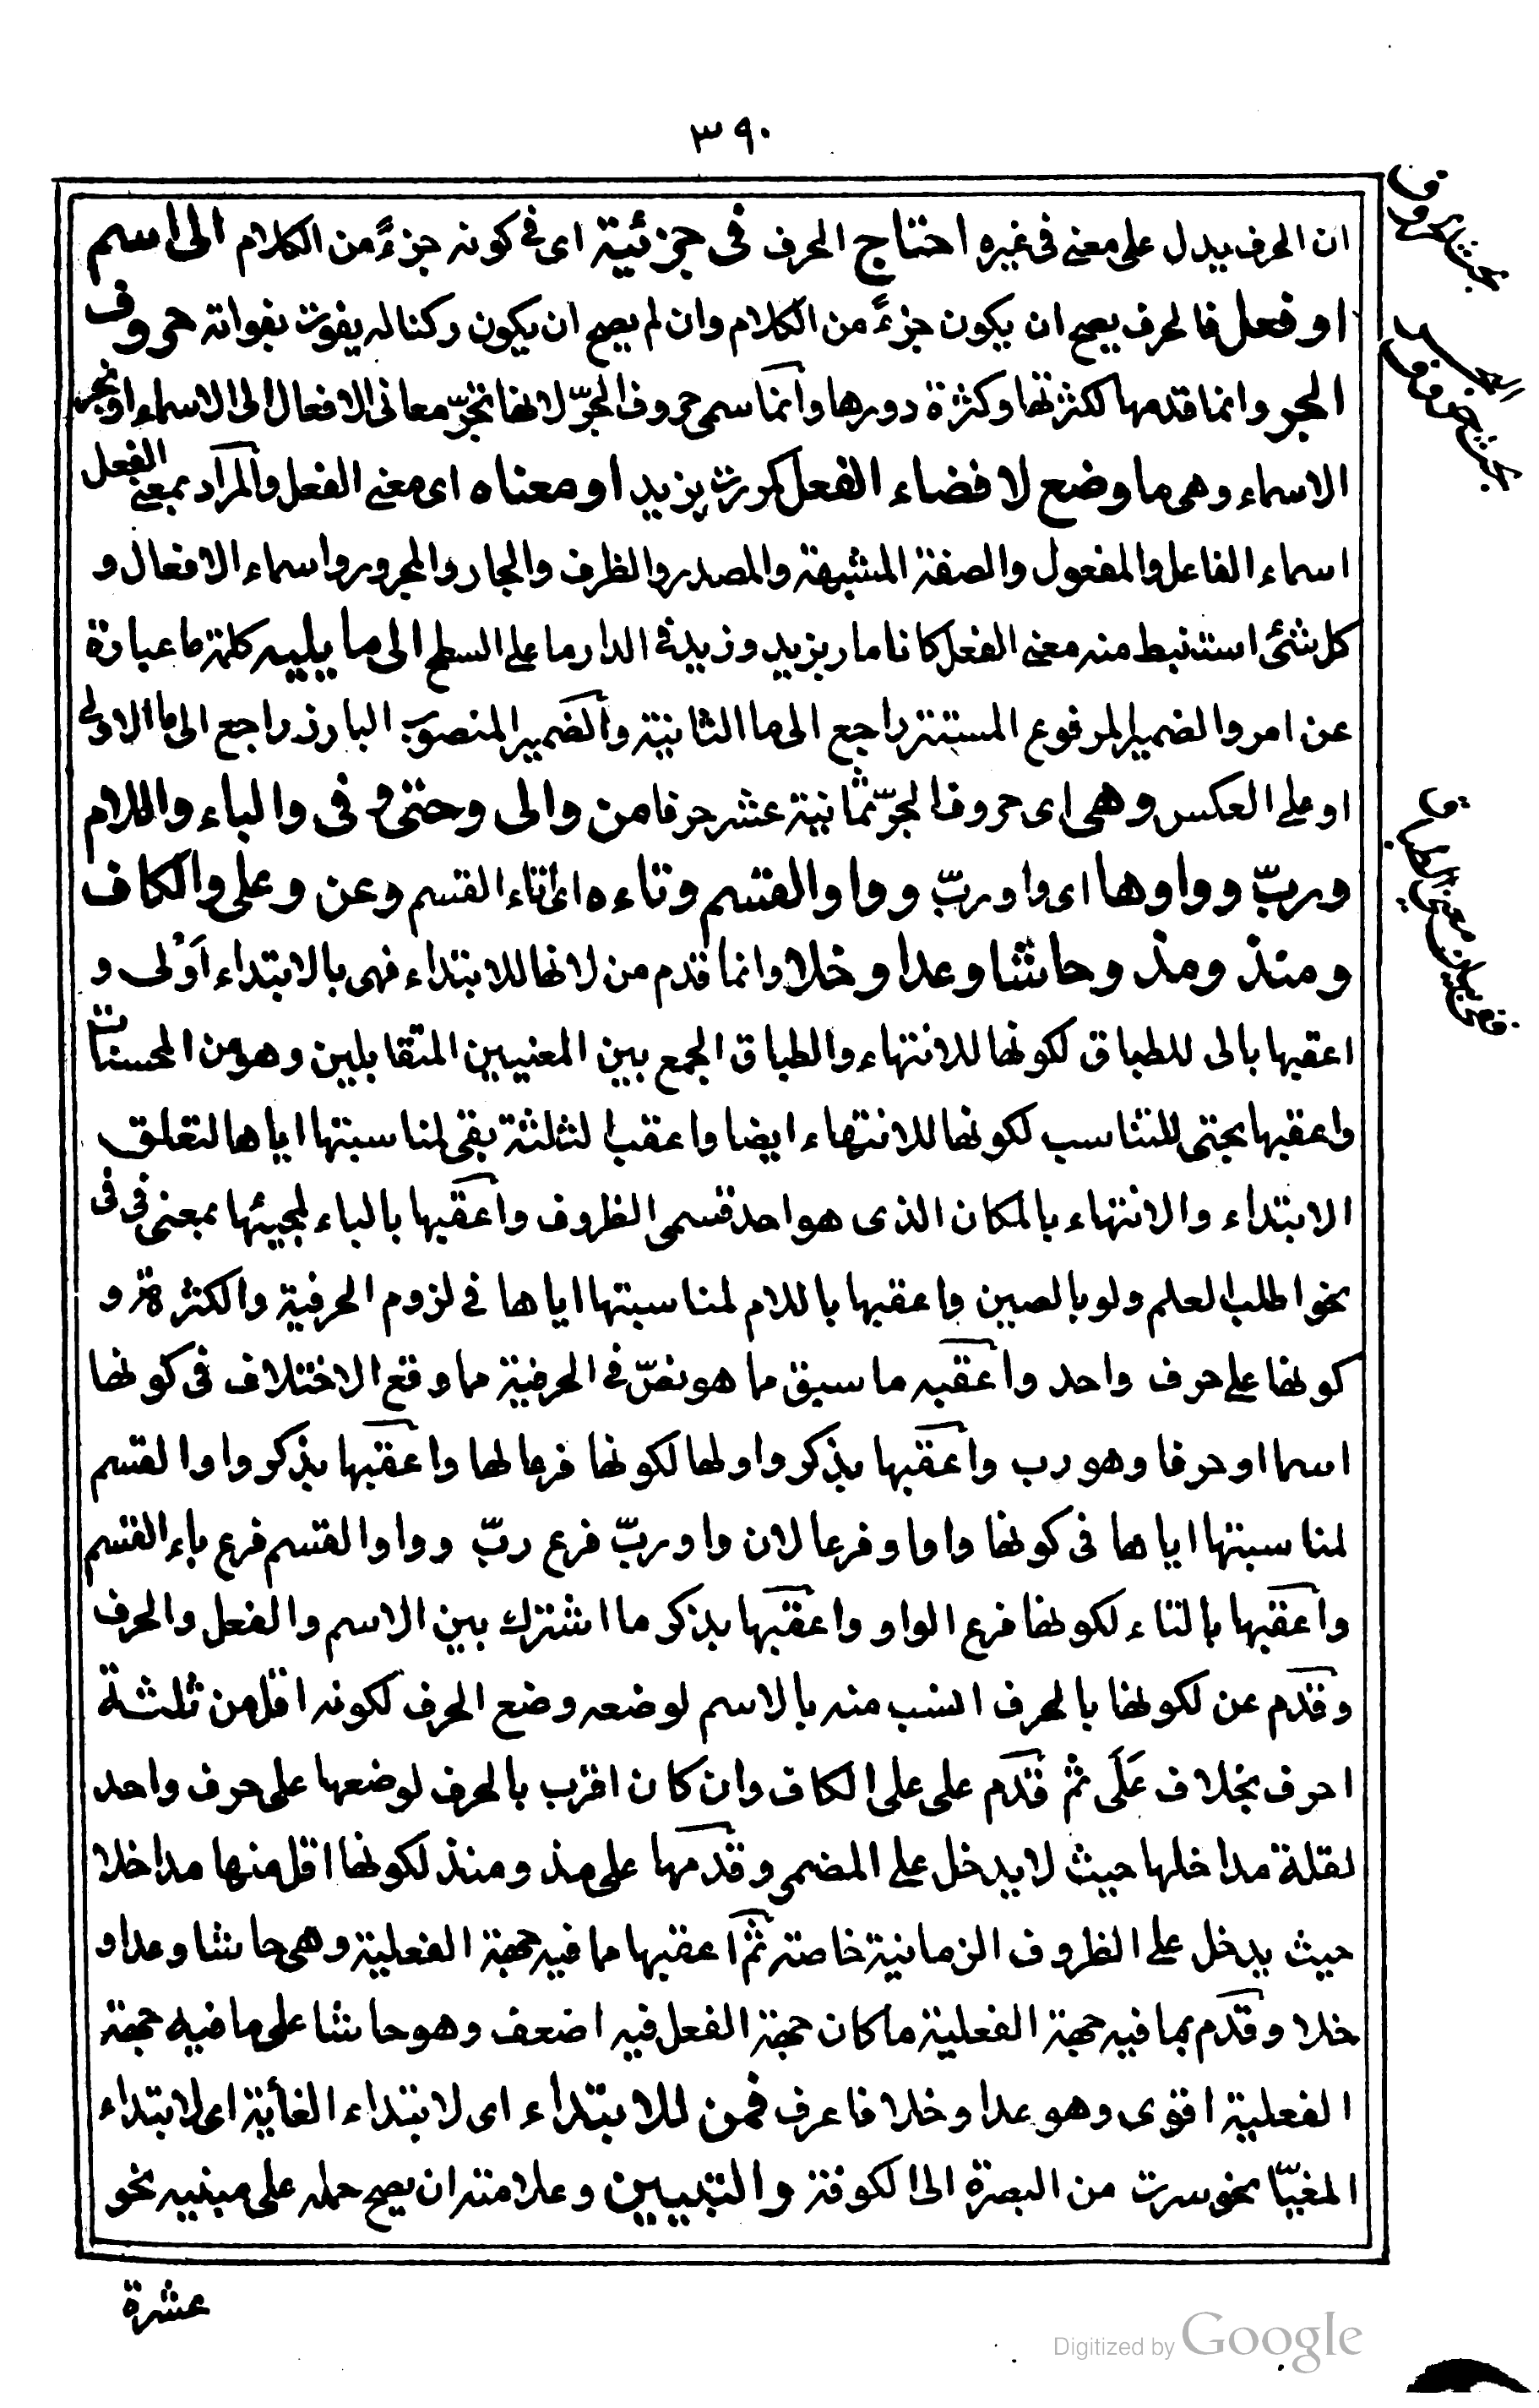 ٣٩٠
ان الحرف يدل على معنى فى غيره احتاج الحرف فى جزئية اى فى كونه جزءً من الكلام الى اسم
او فعل فالحرف يصح ان يكون جزءً من الكلام وان لم يصح ان يكون ركنا له يفوت بفواته حروف
الجر وانما قدمها لكثرتها وكثرة دورها وانما سمى حروف الجرّ لانها تجرّ معانى الافعال الى الاسماء او تجر
الاسماء وهى ما وضع لافضاء الفعل كمررت بزيد او معناه اى معنى الفعل والمراد بمعنى الفعل
اسماء الفاعل والمفعول والصفة المشبهة والمصدر والظرف والجار والمجرور واسماء الافعال و
كل شئ استنبط منه معنى الفعل كانا مار بزيد وزيد فى الدار ما على السطح الى ما يليه كلمة ما عبارة
عن امر والضمير المرفوع المستتر راجع الى ما الثانية والضمير المنصوب البارز راجع الى ما الاولى
او على العكس وهى اى حروف الجرّ ثمانية عشر حرفا من والى وحتى و فى والباء واللام
وربّ وواوها اى واو ربّ وواو القسم وتاءه اى تاء القسم وعن وعلى والكاف
ومنذ ومذ وحاشا وعدا وخلا وانما قدم من لانها للابتداء فهى بالابتداء اَوْلى و
اعقبها بالى للطباق لكونها للانتهاء والطباق الجمع بين المعنيين المتقابلين وهو من المحسنات
واعقبها بحتى للتناسب لكونها للانتهاء ايضا واعقب الثلثة بفى لمناسبتها اياها لتعلق
الابتداء والانتهاء بالمكان الذى هو احد قسمى الظروف واعقبها بالباء لمجيئها بمعنى فى فى
نحو اطلب العلم ولو بالصين واعقبها باللام لمناسبتها اياها فى لزوم الحرفية والكثرة و
كونها على حرف واحد واعقبه ما سبق مما هو نصّ فى الحرفية مما وقع الاختلاف فى كونها
اسما او حرفا وهو رب واعقبها بذكر واولها لكونها فرعا لها واعقبها بذكر واو القسم
لمناسبتها اياها فى كونها واوا وفرعا لان واو ربّ فرع ربّ وواو القسم فرع باء القسم
واعقبها بالتاء لكونها فرع الواو واعقبها بذكر ما اشترك بين الاسم والفعل والحرف
وقدم عن لكونها بالحرف انسب منه بالاسم لوضعه وضع الحرف لكونه اقل من ثلثة
احرف بخلاف عَلَى ثم قدم على على الكاف وان كان اقرب بالحرف لوضعها على حرف واحد
لقلة مداخلها حيث لا يدخل على المضمر وقدمها على مذ ومنذ لكونها اقل منها مداخلا
حيث يدخل على الظروف الزمانية خاصة ثم اعقبها مما فيه جهة الفعلية وهى حاشا وعدا و
خلا وقدم بما فيه جهة الفعلية ما كان جهة الفعل فيه اضعف وهو حاشا على ما فيه جهة
الفعلية اقوى وهو عدا وخلا فاعرف فمن للابتداء اى لابتداء الغاية اى لابتداء
المغيّا نحو سرت من البصرة الى الكوفة والتبيين وعلامته ان يصح حمله على مبنيه نحو
عشرة
بحث الحروف
بحث حروف الجر
فى بيان معنى الطباق
Digitized by Google